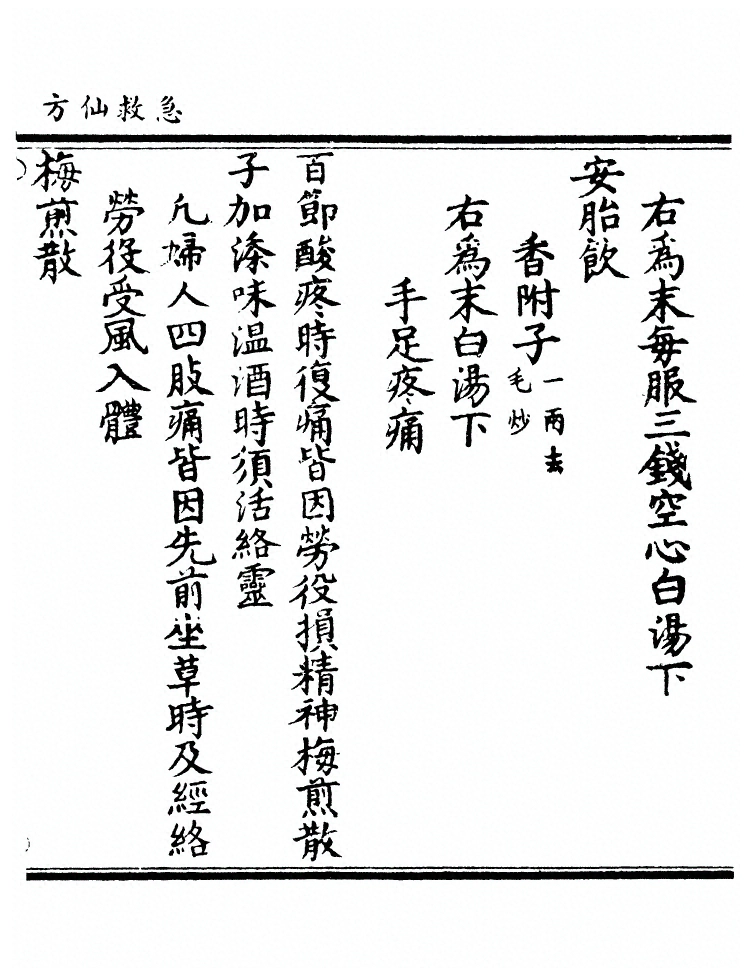 急救仙方
右爲末每服三錢空心白湯下
安胎飲
香附子一兩去毛炒
右爲末白湯下
手足疼痛
百節酸疼時復痛皆因勞役損精神梅煎散
子加漆味温酒時須活絡靈
凡婦人四肢痛皆因先前坐草時及經絡
勞役受風入體
梅煎散